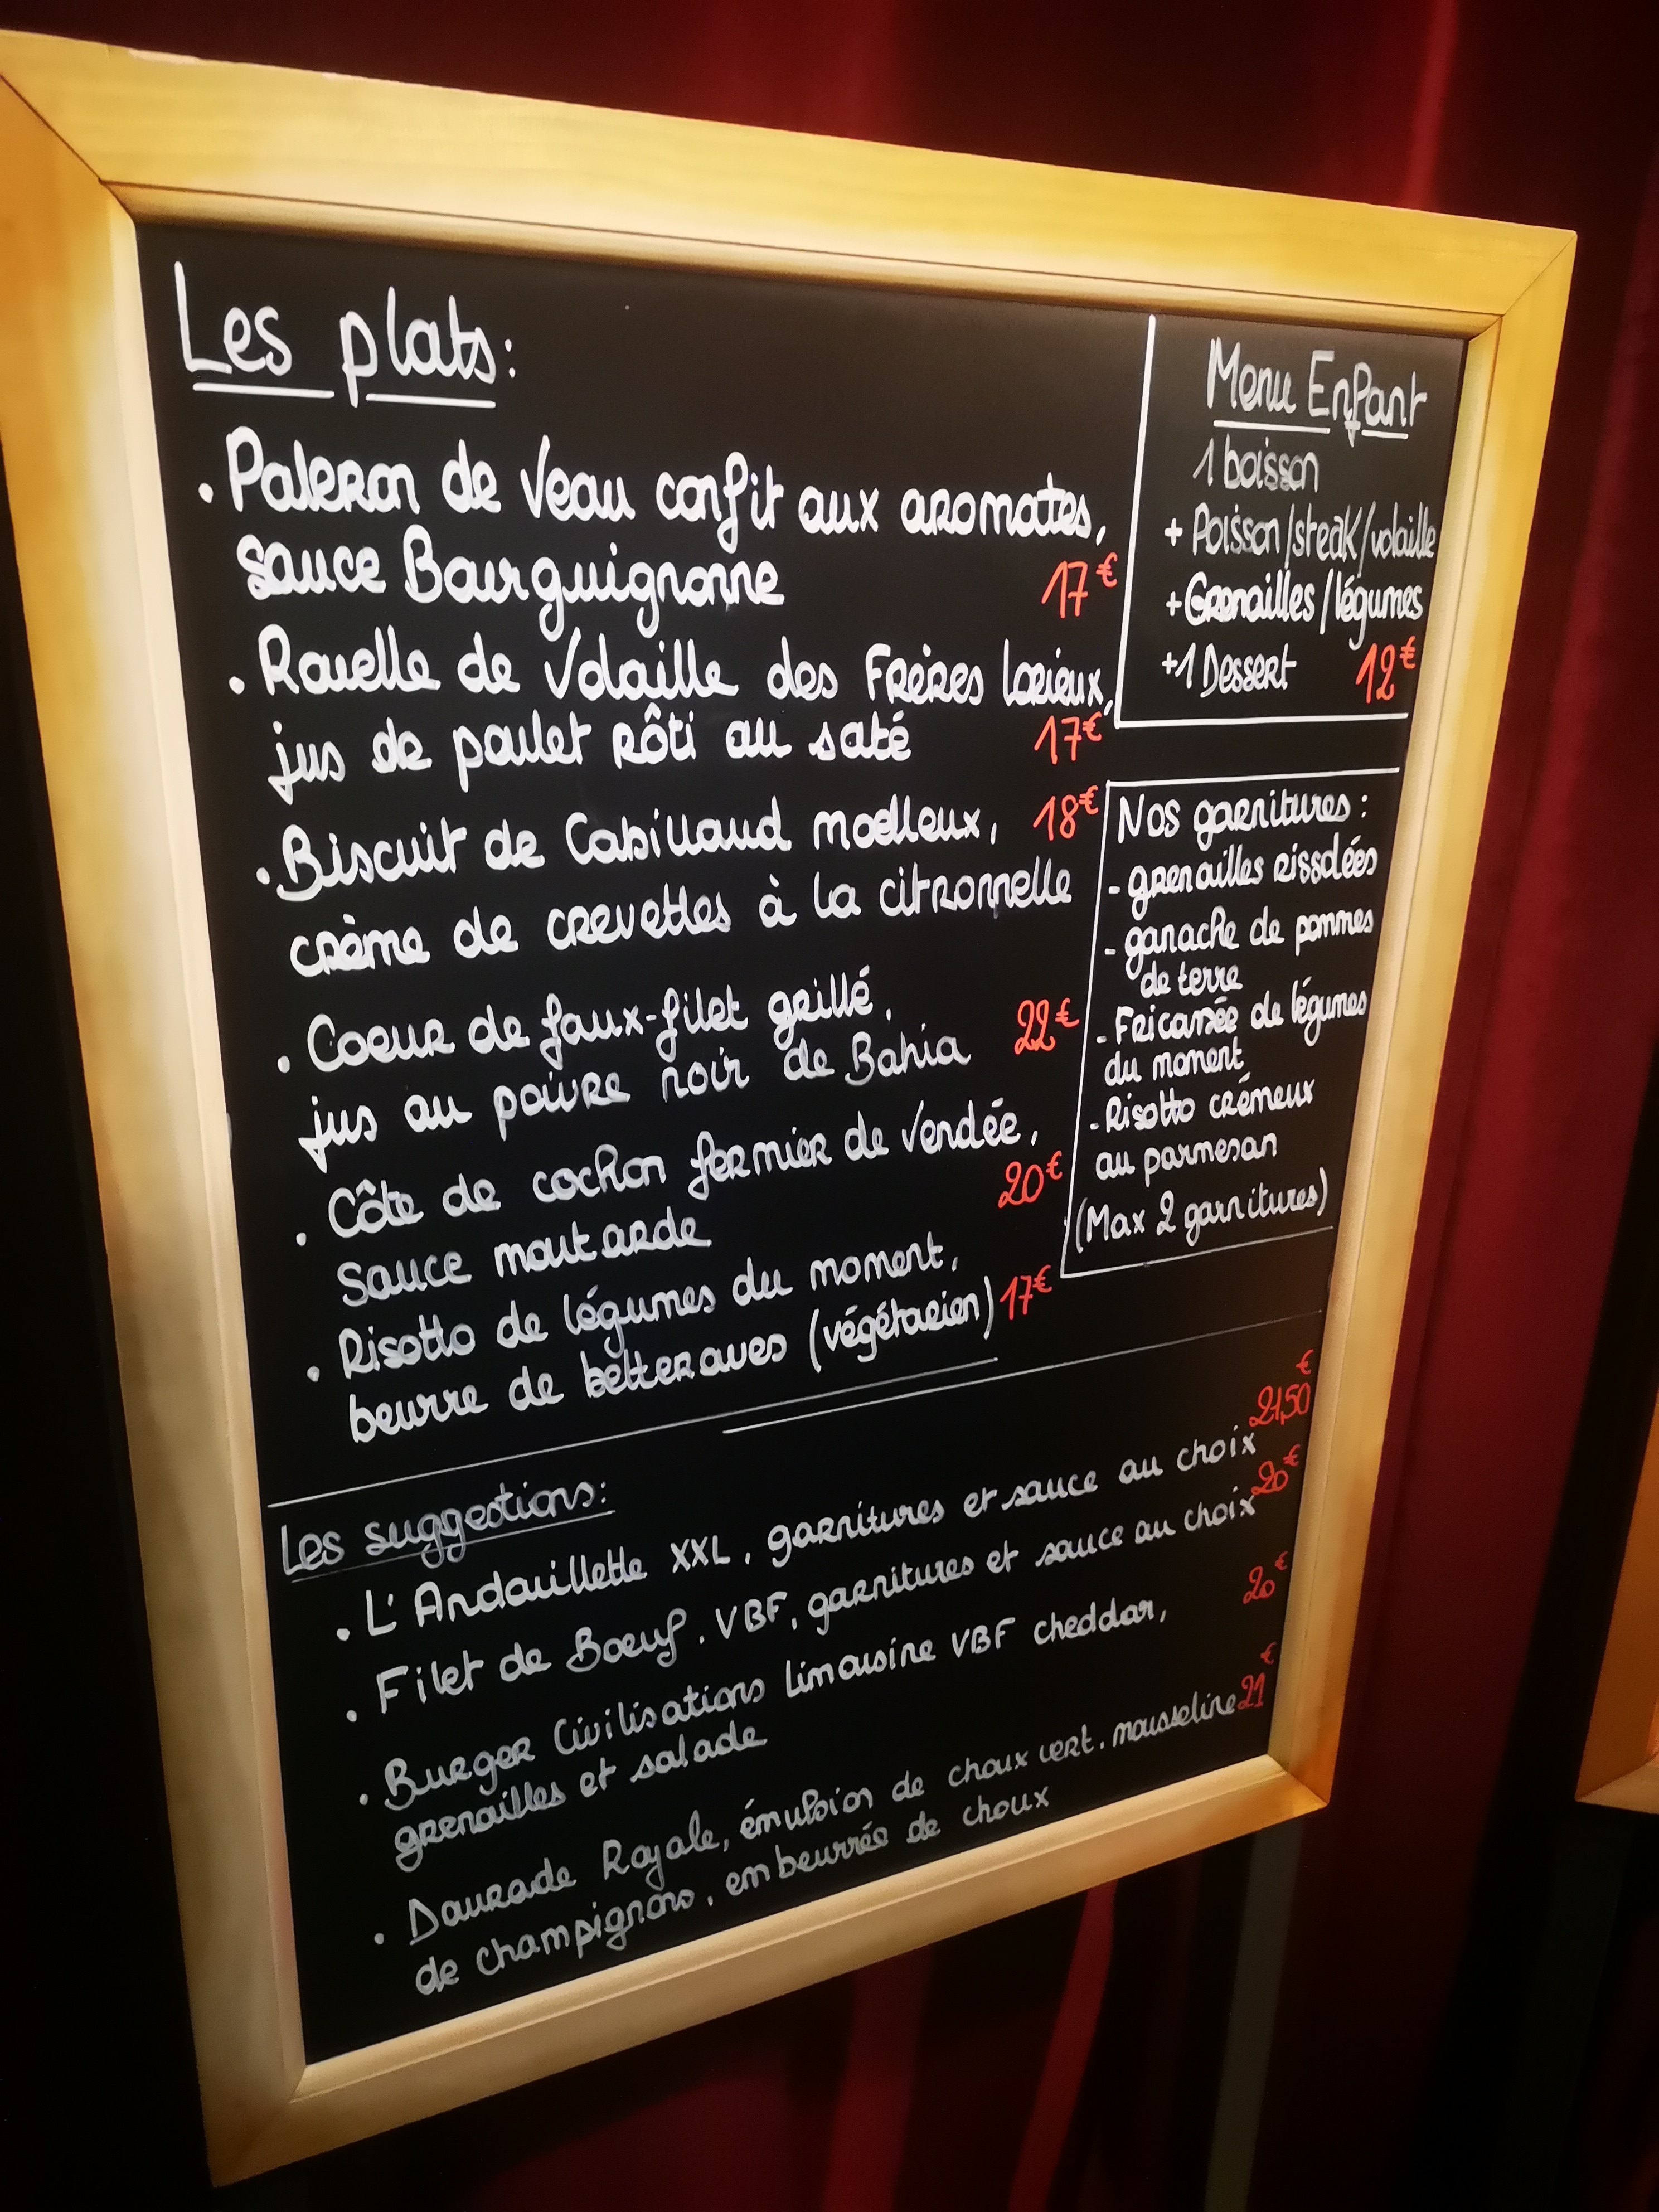 Les plats:
. Paleron de veau confit aux aromates,
sauce Bourguignonne 17€
. Rouelle de Volaille des Frères Lorieux,
jus de poulet rôti au saté 17€
. Biscuit de Cabillaud moelleux, 18€
crème de crevettes à la citronnelle
. Coeur de faux-filet grillé,
jus au poivre noir de Bahia 22€
. Côte de cochon fermier de Vendée,
sauce moutarde 20€
. Risotto de légumes du moment,
beurre de betteraves (végétarien) 17€
Menu Enfant
1 boisson
+ Poisson/steak/volaille
+ Grenailles/légumes
+1 Dessert 12€
Nos garnitures:
- grenailles rissolées
- ganache de pommes
de terre
- Fricassée de légumes
du moment
- Risotto crémeux
au parmesan
(Max 2 garnitures)
Les suggestions:
. L'Andouillette XXL, garnitures et sauce au choix 21,50€
. Filet de Boeuf. VBF, garnitures et sauce au choix 20€
. Burger Civilisations Limousine VBF cheddar, 20€
grenailles et salade
. Daurade Royale, émulsion de choux vert, mousseline 21€
de champignons, embeurrée de choux